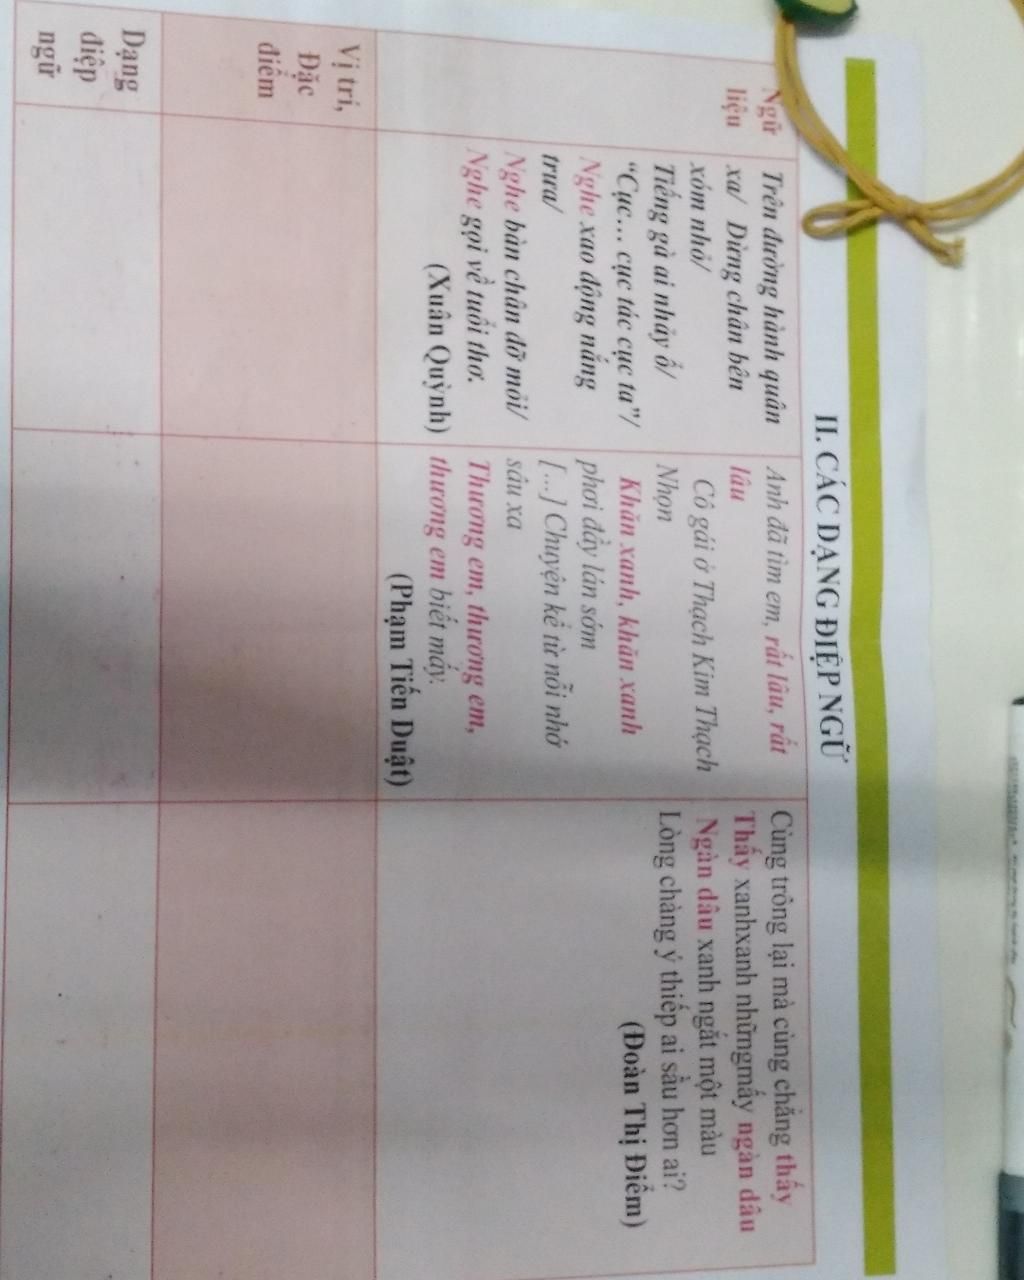 II. CÁC DẠNG ĐIỆP NGỮ
Ngữ
liệu
Trên đường hành quân
xa/ Dừng chân bên
xóm nhỏ/
Tiếng gà ai nhảy ổ/
“Cục... cục tác cục ta”/
Nghe xao động nắng
trưa/
Nghe bàn chân đỡ mỏi/
Nghe gọi về tuổi thơ.
(Xuân Quỳnh)
Anh đã tìm em, rất lâu, rất
lâu
Cô gái ở Thạch Kim Thạch
Nhọn
Khăn xanh, khăn xanh
phơi đầy lán sớm
[...] Chuyện kể từ nỗi nhớ
sâu xa
Thương em, thương em,
thương em biết mấy.
(Phạm Tiến Duật)
Cùng trông lại mà cùng chẳng thấy
Thấy xanhxanh nhữngmấy ngàn dâu
Ngàn dâu xanh ngắt một màu
Lòng chàng ý thiếp ai sầu hơn ai?
(Đoàn Thị Điểm)
Vị trí,
Đặc
điểm
Dạng
điệp
ngữ